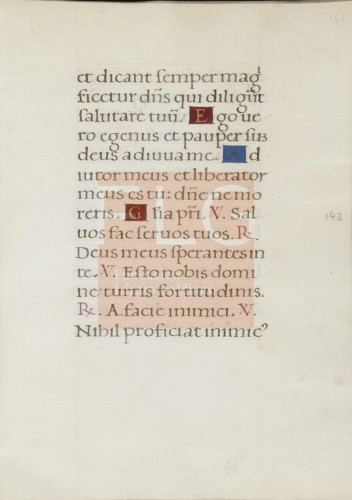 et dicant semper mag
ficetur dñs qui diligũt
salutare tuũ. Ego ve
ro egenus et pauper sũ
deus adiuua me. Ad
iutor meus et liberator
meus es tu: dñe ne mo
reris. Glĩa pri. V. Sal
uos fac seruos tuos. R.
Deus meus sperantes in
te. V. Esto nobis domi
ne turris fortitudinis.
R. A facie inimici. V.
Nihil proficiat inimicꝰ
142
FLG